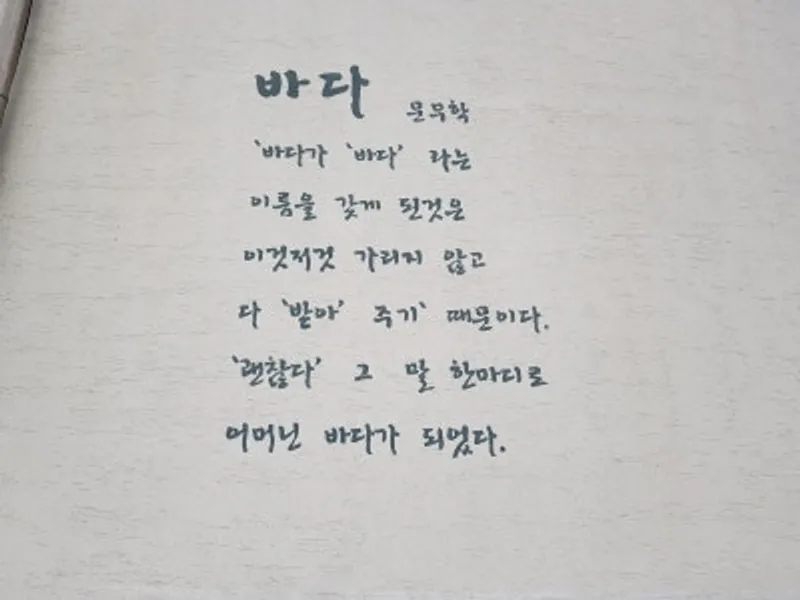 바다
문무학
'바다가 '바다' 라는
이름을 갖게 된것은
이것저것 가리지 않고
다 '받아' 주기' 때문이다.
'괜찮다' 그 말 한마디로
어머닌 바다가 되었다.